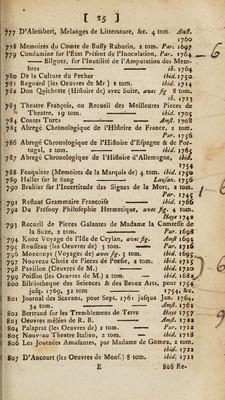 [ 25 ]
777 D'Alembert, Melanges de Litterature, &c. 4 tom. Amst.
1760
778 Memoires du Comte de Bussy Rabutin, 2 tom. Par. 1697
779 Condamine sur l'Etat Présent de l'Inoculation, Par. 1764
—— Bilguer, sur l'Inutilité de l'Amputation des Membres
ib. 1764
780 De la Culture du Pecher ibid. 1750
781 Regnard (les Oeuvres de Mr) 2 tom. ibid. 1714
782 Don Quichotte (Histoire de) avec Suite, avec fig 8 tom.
ib. 1713
783 Theatre François, ou Recueil des Meilleures Pieces de
Theatre, 19 tom. ibid. 1705
784 Contes Turcs Amst. 1708
785 Abregé Chronologique de l'Histoire de France, 2 tom.
Par. 1756
786 Abregé Chronologique de l'Histoire d'Espagne & de Portugal,
2 tom. ibid. 1765
787 Abregé Chronologique de l'Histoire d'Allemagne, ibid.
1754
788 Feuquiere (Memoires de la Marquis de) 4 tom. ibid. 1750
789 Haller sur le Sang Lausan. 1756
790 Bruhier sur l'Incertitude des Signes de la Mort, 2 tom.
Par. 1745
791 Restaut Grammaire Francoise ibid. 1766
792 Du Fresnoy Philosophie Hermetique, avec fig. 4 tom.
Haye 1742
793 Recueil de Pieces Galantes de Madame la Comtesse de
la Suze, 2 tom. Par. 1698
794 Knox Voyage de l'Isle de Ceylan, avec fig. Amst. 1693
795 Rousseau (les Oeuvres de) 5 tom. Par. 1716
796 Monconys (Voyages de) avec fig. 5 tom. ibid. 1695
797 Nouveau Choix de Pieces de Poesie, 2 tom. ibid. 1715
798 Pavillon (Oeuvres de M.) ibid. 1720
799 Poisson (les Oeuvres de) 2 tom. ibid. 1682
800 Bibliotheque des Sciences & des Beaux Arts, pour 1754
jusq. 1769, 32 tom 1754, &c.
801 Journal des Scavans, pour Sept. 1761 jusqua Jan. 1764,
34 tom. Amst. 1761
802 Bertrand sur les Tremblemens de Terre Haye 1757
803 Oeuvres mêlées de R. B. Amst. 1722
804 Palaprat (les Oeuvres de) 2 tom. Par. 1712
805 Nouveau Theatre Italien, 2 tom. ibid. 1718
806 Les Journées Amusantes, par Madame de Gomez, 2 tom.
ibid.
807 D'Ancourt (les Oeuvres de Mons.) 8 tom. ibid. 1711
E 808 Re-